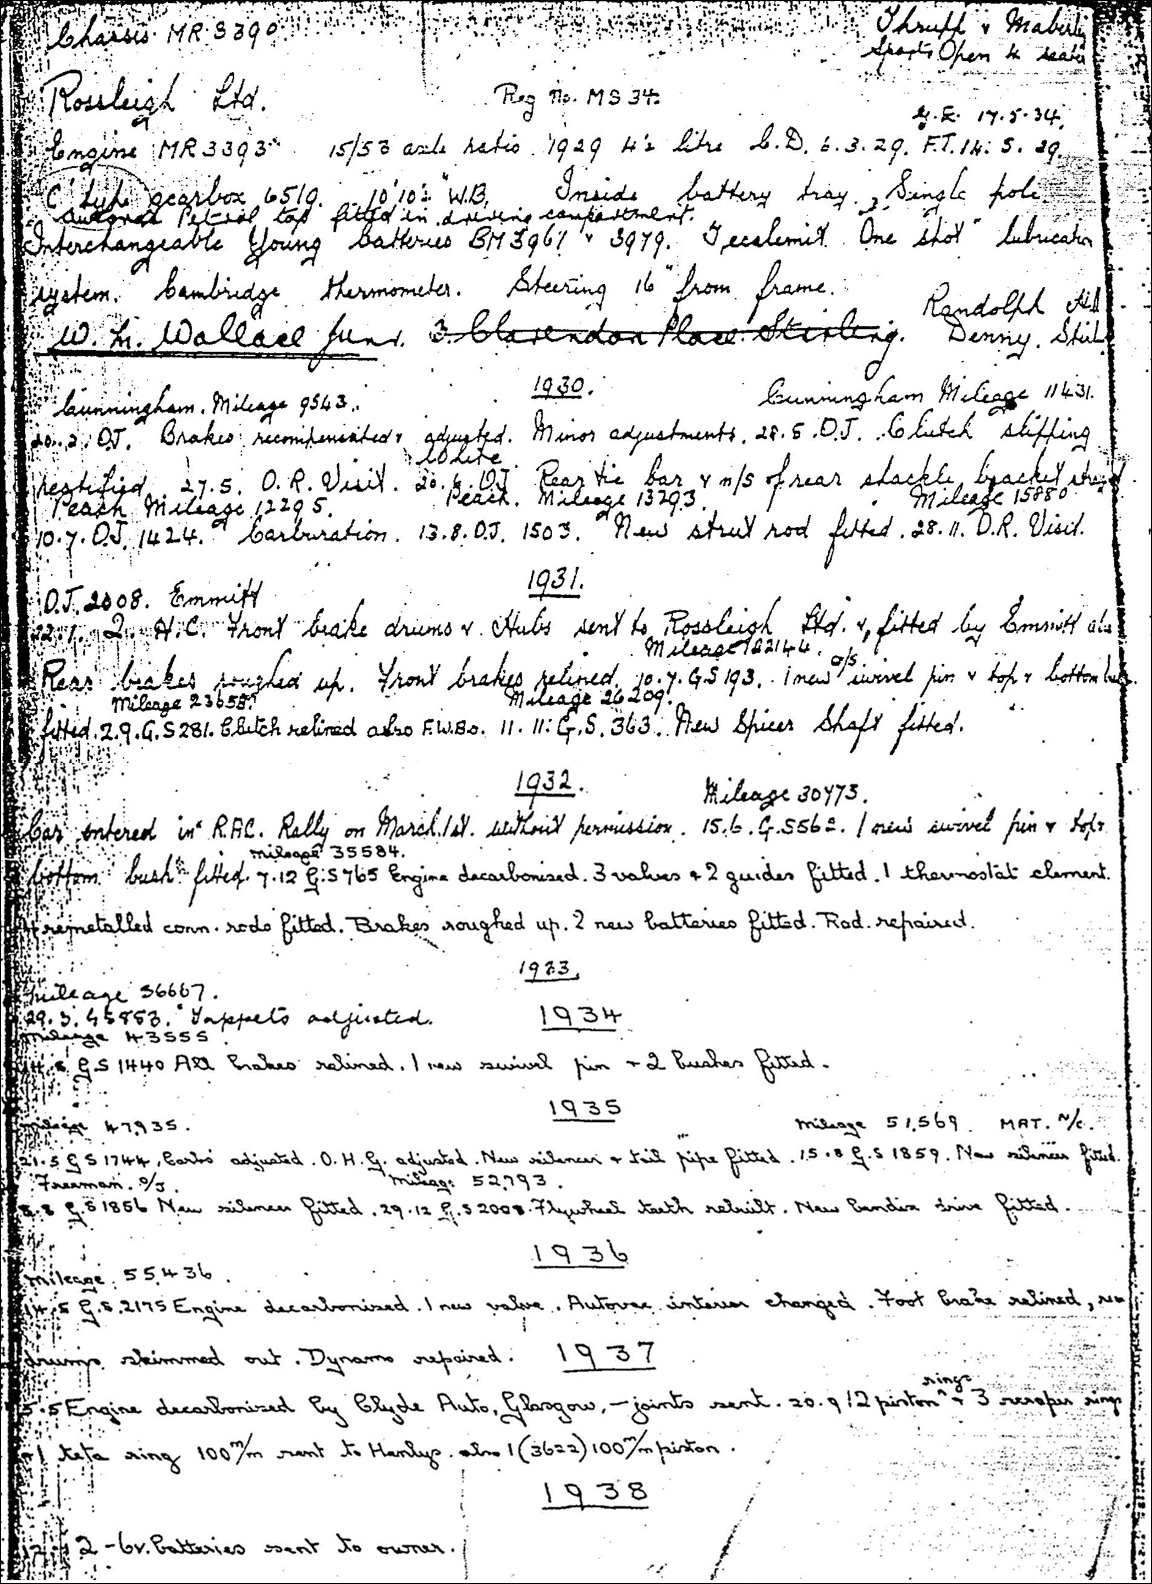 Chassis MR 3390. Thrupp & Maberly
Sports Open 4 seater
Rossleigh Ltd. Reg No. MS 34.
G.E. 17.5.34.
Engine MR 3393 15/53 axle ratio 1929 4½ litre C.D. 6.3.29. F.T. 14.5.29.
"C" type gearbox 6519. 10'10½" W.B. Inside battery tray. Single pole
Petrol tap fitted in driving compartment.
Interchangeable Young batteries BM 3967 & 3979. Tecalemit "One shot" lubrication
system. Cambridge thermometer. Steering 16" from frame.
Randolph
W. L. Wallace Junr. 3. Clarendon Place. Stirling. Denny. Stirl
1930.
Cunningham. Mileage 9543. Cunningham Mileage 11431.
O.J. Brakes recompensated & adjusted. Minor adjustments. 28.5. O.J. Clutch slipping
White
rectified. 27.5. O.R. Visit. 20.6. O.J. Rear tie bar & n/s of rear shackle bracket
Peach Mileage 12295. Peach. Mileage 13293. Mileage 15880
10.7. O.J. 1424. Carburation. 13.8. O.J. 1503. New strut rod fitted. 28.11. O.R. Visit.
1931.
O.J. 2008. Emmitt
22.1. 2 H.C. Front brake drums & Hubs sent to Rossleigh Ltd. & fitted by Emmitt also
Mileage 22144.
Rear brakes roughed up. Front brakes relined. 10.7. G.S 193. 1 new o/s swivel pin & top & bottom
Mileage 23658. Mileage 26209.
fitted. 2.9. G.S 281. Clutch relined also F.W.Bs. 11.11. G.S. 363. New Spicer Shaft fitted.
1932.
Mileage 30473.
Car entered in R.A.C. Rally on March 1st. without permission. 15.6. G.S 562. 1 new swivel pin & top &
Mileage 35584.
bottom bush fitted. 7.12 G.S 765 Engine decarbonised. 3 valves & 2 guides fitted. 1 thermostat element.
remetalled conn. rods fitted. Brakes roughed up. 2 new batteries fitted. Rad. repaired.
1933.
Mileage 36667.
29.3. GS 853. Tappets adjusted.
1934
Mileage 43555
G.S 1440 All brakes relined. 1 new swivel pin + 2 bushes fitted.
1935
Mileage 47935. Mileage 51,569. MAT. N/C.
21.5 G S 1744. Carbs adjusted. O.H.G. adjusted. New silencer + tail pipe fitted. 15.8 G.S 1859. New silencer fitted.
Freeman. O/J. Mileage 52,793.
8.8 G S 1856 New silencer fitted. 29.12 G.S 2008. Flywheel teeth rebuilt. New bendix drive fitted.
1936
Mileage. 55,436.
14.5 G.S. 2175 Engine decarbonised. 1 new valve. Autovac interior changed. Foot brake relined,
drums skimmed out. Dynamo repaired.
1937
rings
5.5 Engine decarbonised by Clyde Auto, Glasgow, - joints sent. 20.9 12 piston ^ + 3 scraper rings
+ 1 ring 100 m/m sent to Henlys. also 1 (3622) 100 m/m piston.
1938
2 - 6v. batteries sent to owner.